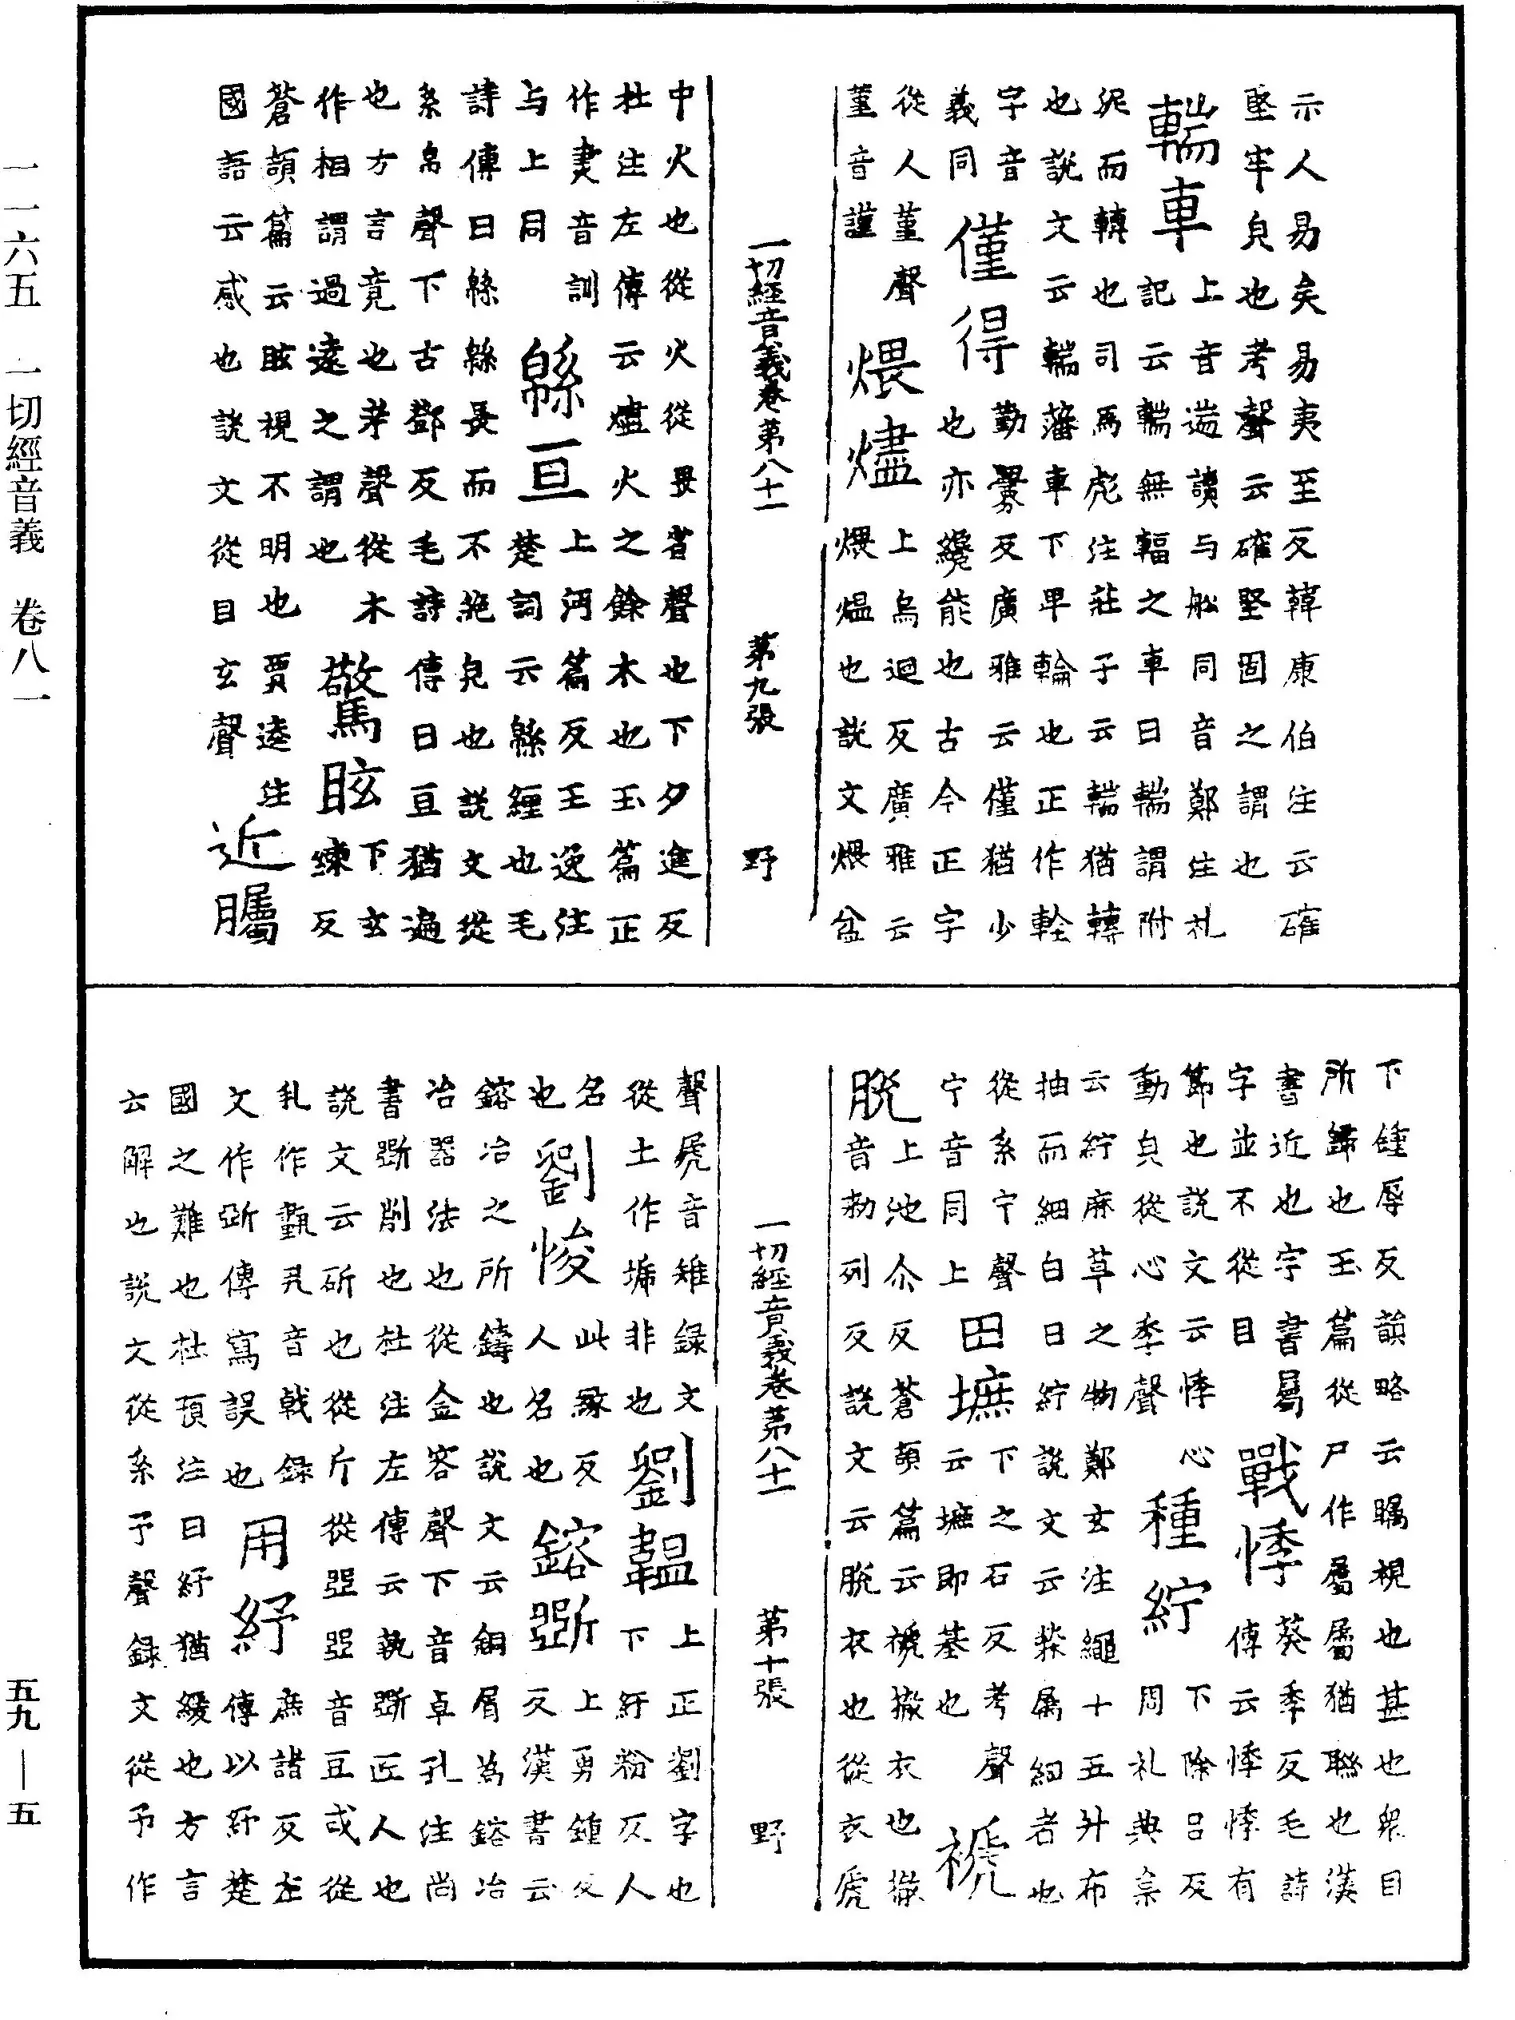 示人易矣易夷至反韓康伯注云確
堅牢皃也考聲云確堅固之謂也
輲車上音遄讀与舩同音鄭注礼
記云輲無輻之車曰輲謂附
泥而轉也司馬彪注莊子云輲猶轉
也說文云輲藩車下卑輪也正作輇
字音
義同僅得勤㬥反廣雅云僅猶少
也亦纔能也古今正字
從人堇聲
堇音謹煨燼上烏迴反廣雅云
煨熅也說文煨盆
一切經音義卷第八十一 第九張 野
中火也從火從畏省聲也下夕進反
杜注左傳云燼火之餘木也玉篇正
作㶳音訓
与上同緜亘上沔篇反王逸注
楚詞云緜纏也毛
詩傳曰緜緜長而不絶皃也說文從
糸帛聲下古鄧反毛詩傳曰亘猶遍
也方言竟也考聲從木
作相謂過遠之謂也驚眩下玄
練反
蒼頡篇云眩視不明也賈逵注
國語云惑也說文從目玄聲近矚
下鍾辱反韻略云矚視也甚也衆目
所歸也玉篇從尸作屬屬猶聯也漢
書近也字書屬
字並不從目戰悸葵季反毛詩
傳云悸悸有
節也說文云悸心
動皃從心季聲種紵下除呂反
周礼典枲
云紵麻草之物鄭玄注繩十五升布
抽而細白曰紵說文云檾属細者也
從糸宁聲
宁音同上田墌下之石反考聲
云墌即基也褫
脱上池尒反蒼頡篇云褫撤衣也撤
音勑列反說文云脱衣也從衣虒
一切經音義卷第八十一 第十張 野
聲虒音雉録文
從土作墌非也劉韞上正劉字也
下紆粉反人
名此
也劉悛上勇鍾反
人名也鎔斲漢書云
鎔冶之所鑄也說文云銅屑為鎔冶
冶器法也從金容聲下音卓孔注尚
書斲削也杜注左傳云執斲匠人也
說文云斫也從斤從㔁㔁音豆或從
丮作㪿丮音戟録
文作斵傳寫誤也用紓庶諸反左
傳以紓楚
國之難也杜預注曰紓猶緩也方言
云解也說文從糸予聲録文從予作
一一六五 一切經音義 卷八一
五九—五